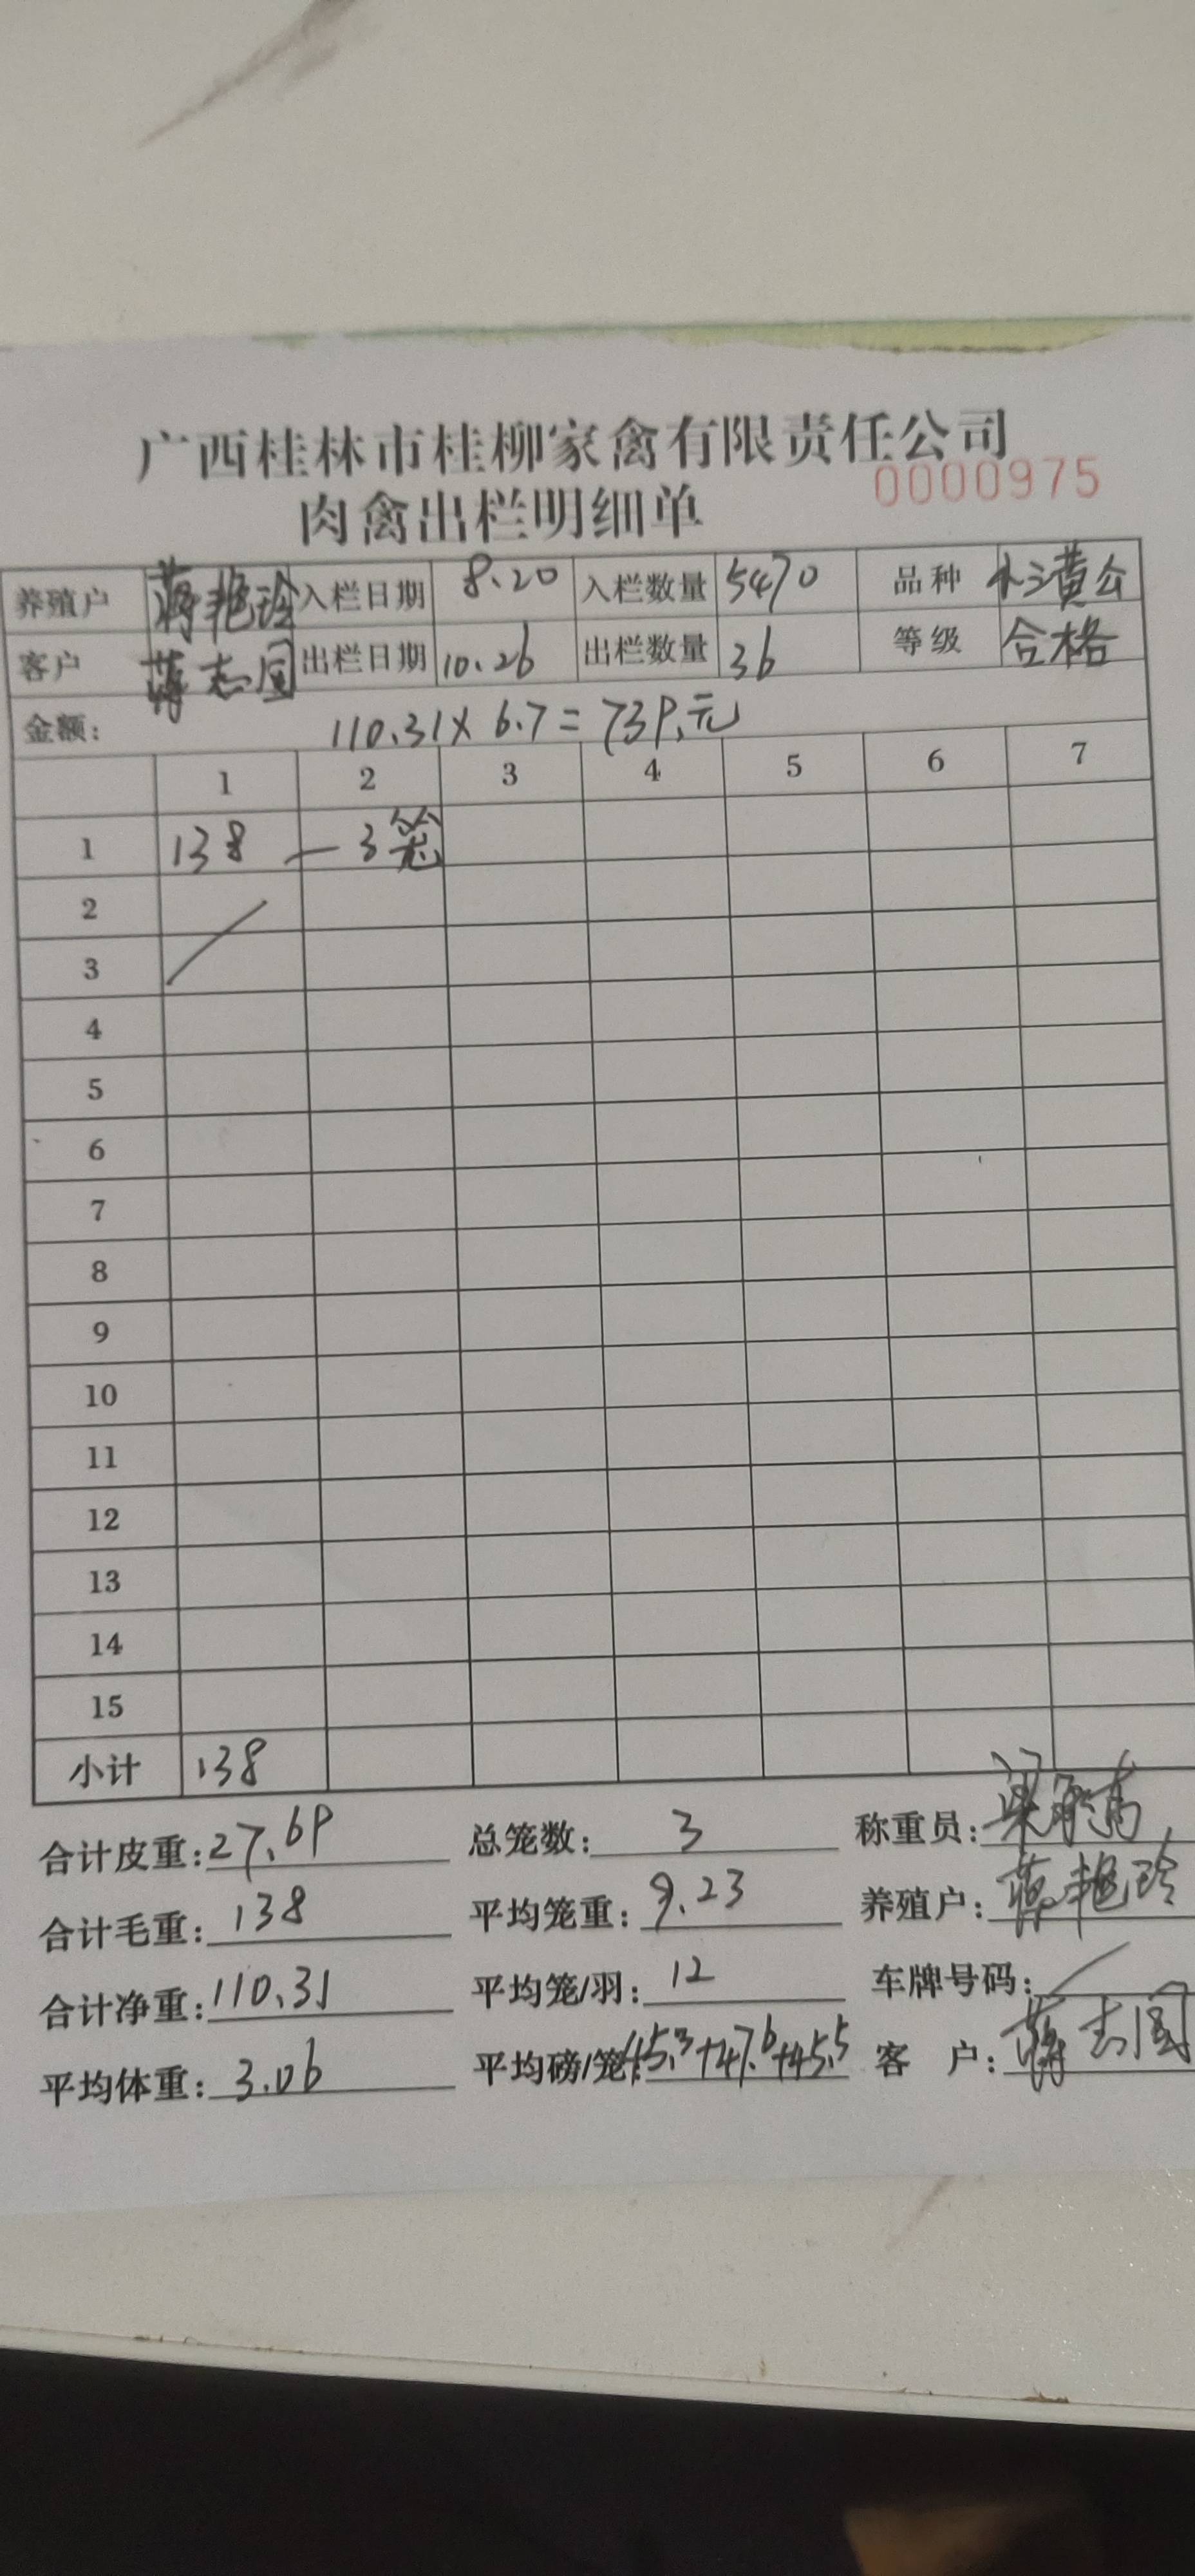 广西桂林市桂柳家禽有限责任公司
肉禽出栏明细单 0000975
养殖户 蒋艳玲 入栏日期 8.20 入栏数量 5470 品种 黄公
客户 蒋志 出栏日期 10.26 出栏数量 36 等级 合格
金额: 110.31 x 6.7 = 739.元
1 2 3 4 5 6 7
1 138 — 3笼
2
3
4
5
6
7
8
9
10
11
12
13
14
15
小计 138
合计皮重: 27.69 总笼数: 3 称重员: 梁
合计毛重: 138 平均笼重: 9.23 养殖户: 蒋艳玲
合计净重: 110.31 平均笼/羽: 12 车牌号码:
平均体重: 3.06 平均磅/笼: 45.3+47.6+45.5 客 户: 蒋志